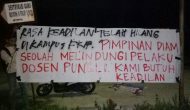 RASA KEADILAN TELAH HILANG
DIKAMPUS FKIP. PIMPINAN DIAM
SEOLAH MELINDUNGI PELAKU
DOSEN PUN KAMI BUTUH
KEADILAN